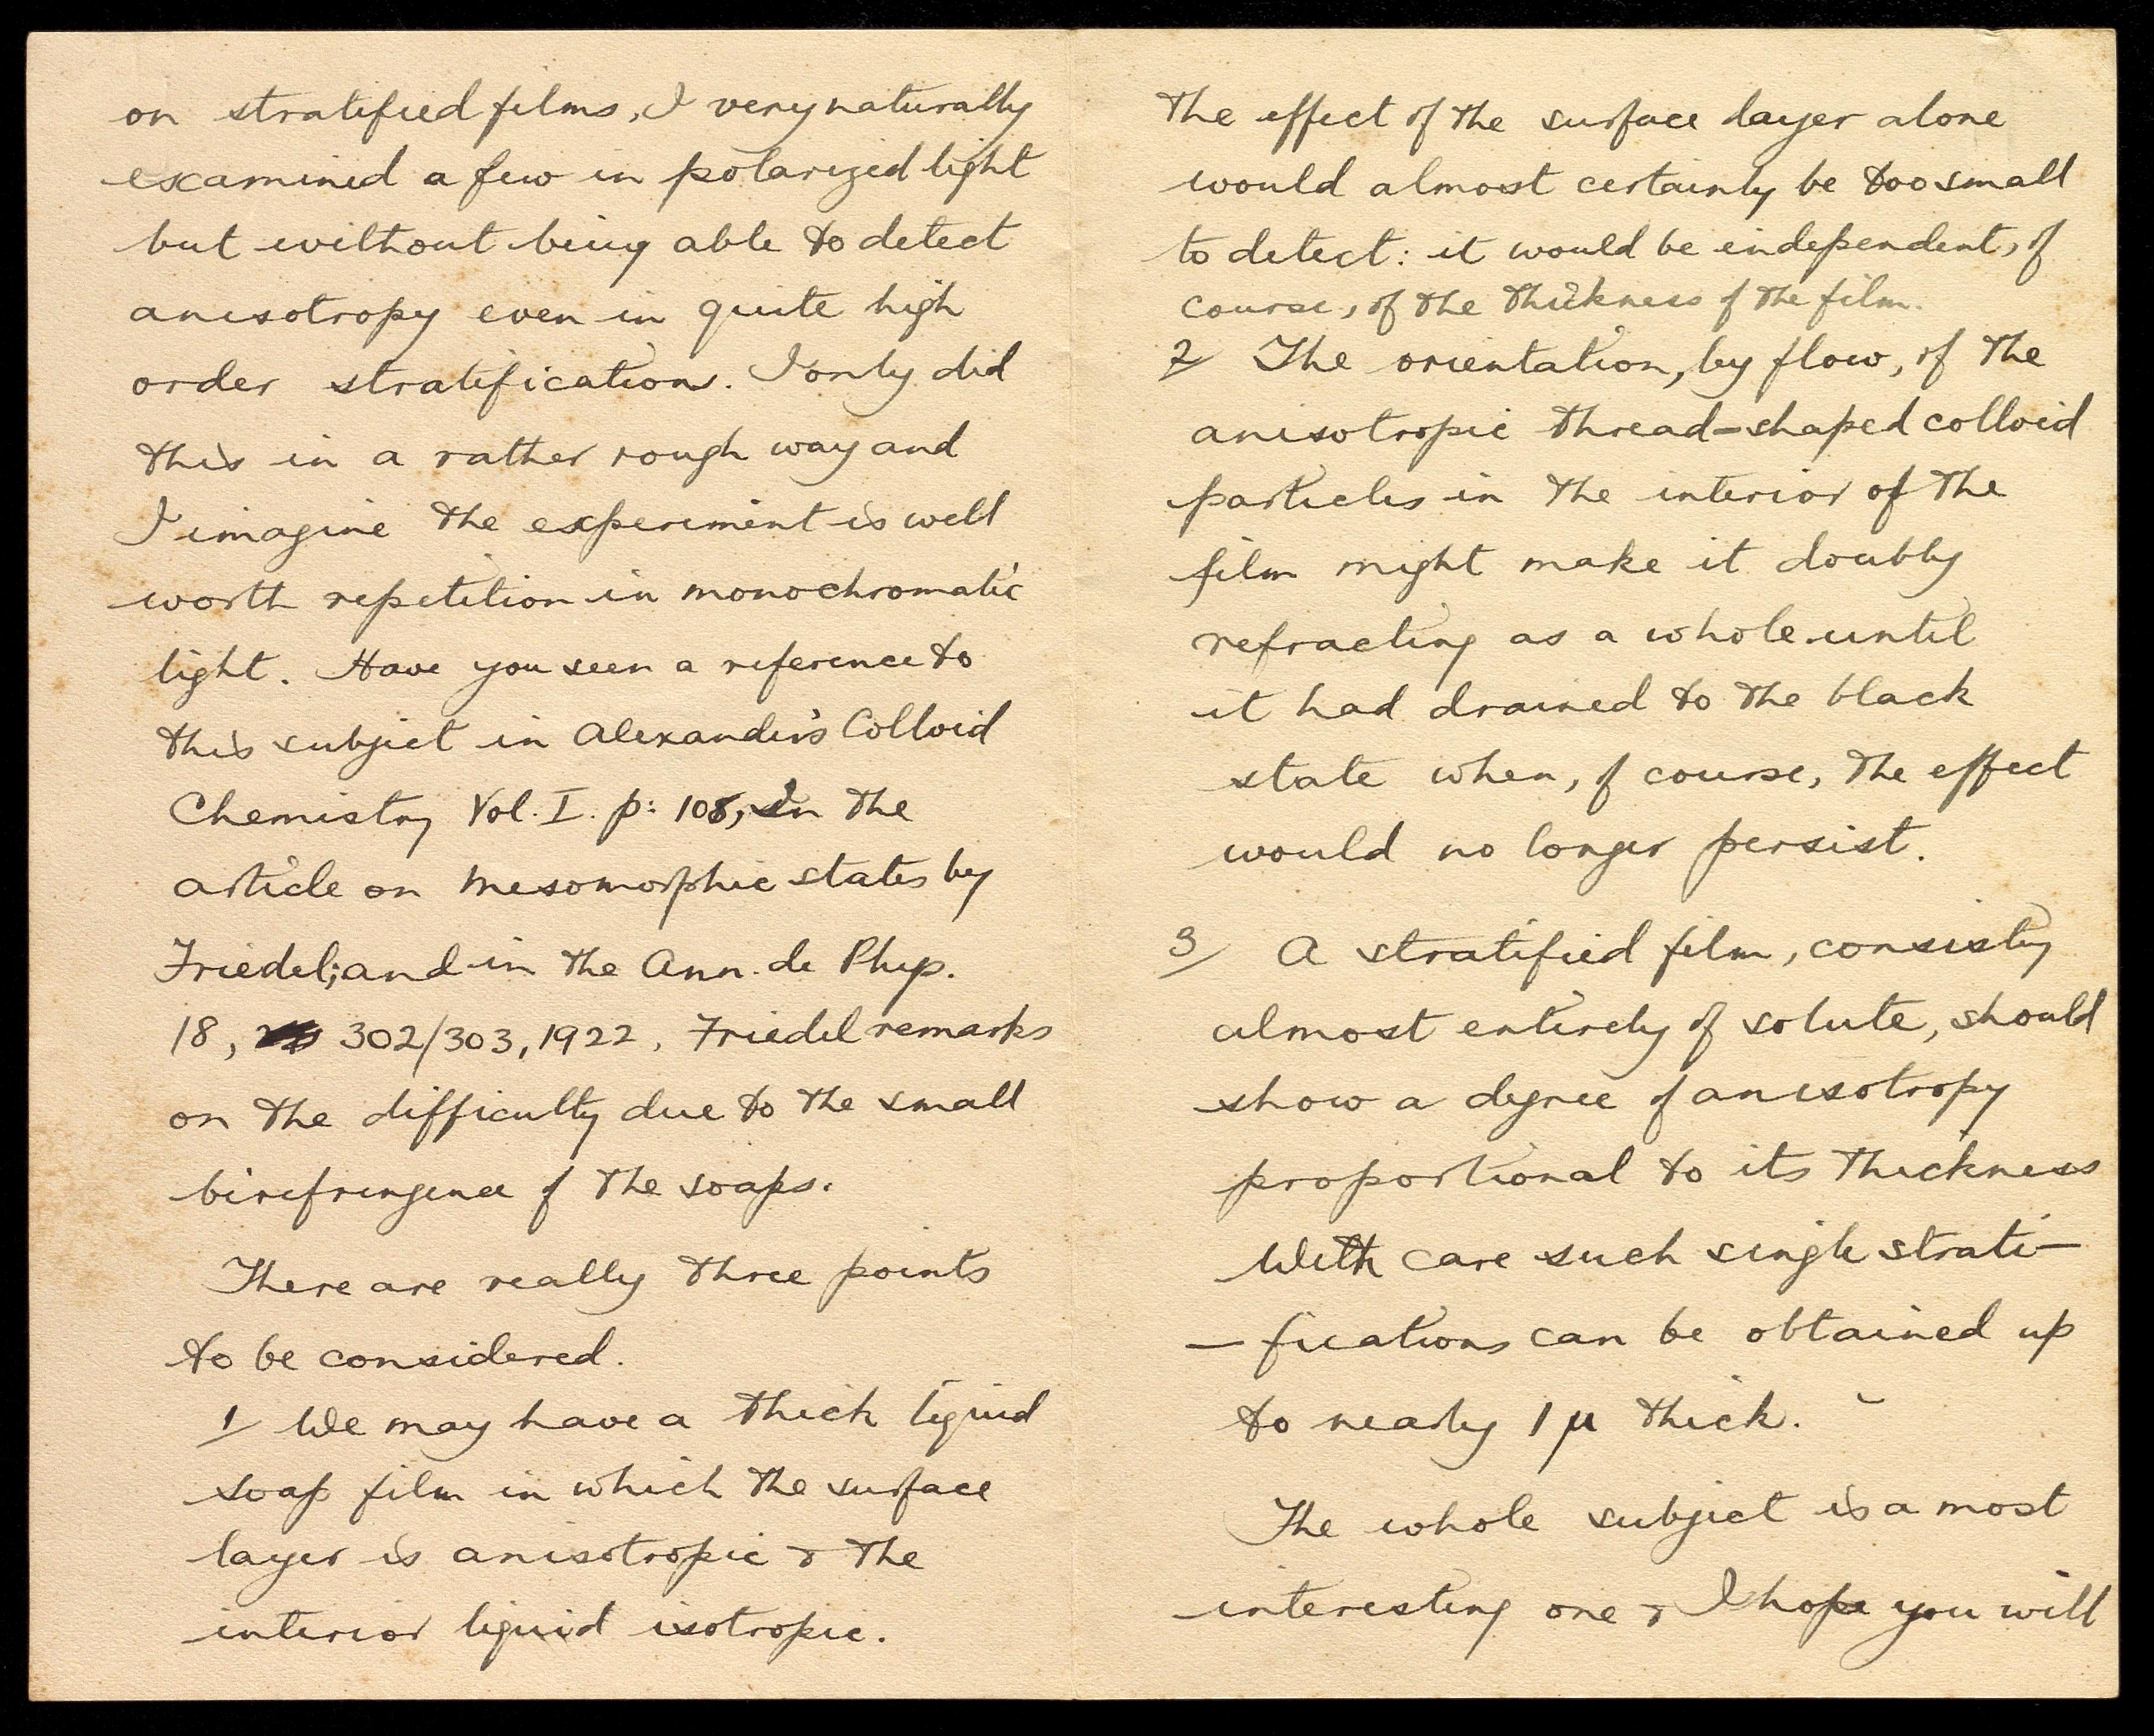 on stratified films, I very naturally
examined a few in polarized light
but without being able to detect
anisotropy even in quite high
order stratifications. I only did
this in a rather rough way and
I imagine the experiment is well
worth repetition in monochromatic
light. Have you seen a reference to
this subject in Alexander's Colloid
Chemistry Vol. I. p: 108, in the
article on mesomorphic states by
Friedel; and in the Ann. de Phys.
18, 302/303, 1922. Friedel remarks
on the difficulty due to the small
birefringence of the soaps.
There are really three points
to be considered.
1/ We may have a thick liquid
soap film in which the surface
layer is anisotropic & the
interior liquid isotropic.
The effect of the surface layer alone
would almost certainly be too small
to detect: it would be independent, of
course, of the thickness of the film.
2/ The orientation, by flow, of the
anisotropic thread-shaped colloid
particles in the interior of the
film might make it doubly
refracting as a whole until
it had drained to the black
state when, of course, the effect
would no longer persist.
3/ A stratified film, consisting
almost entirely of solute, should
show a degree of anisotropy
proportional to its thickness
With care such single strati-
-fications can be obtained up
to nearly 1 µ thick.
The whole subject is a most
interesting one & I hope you will